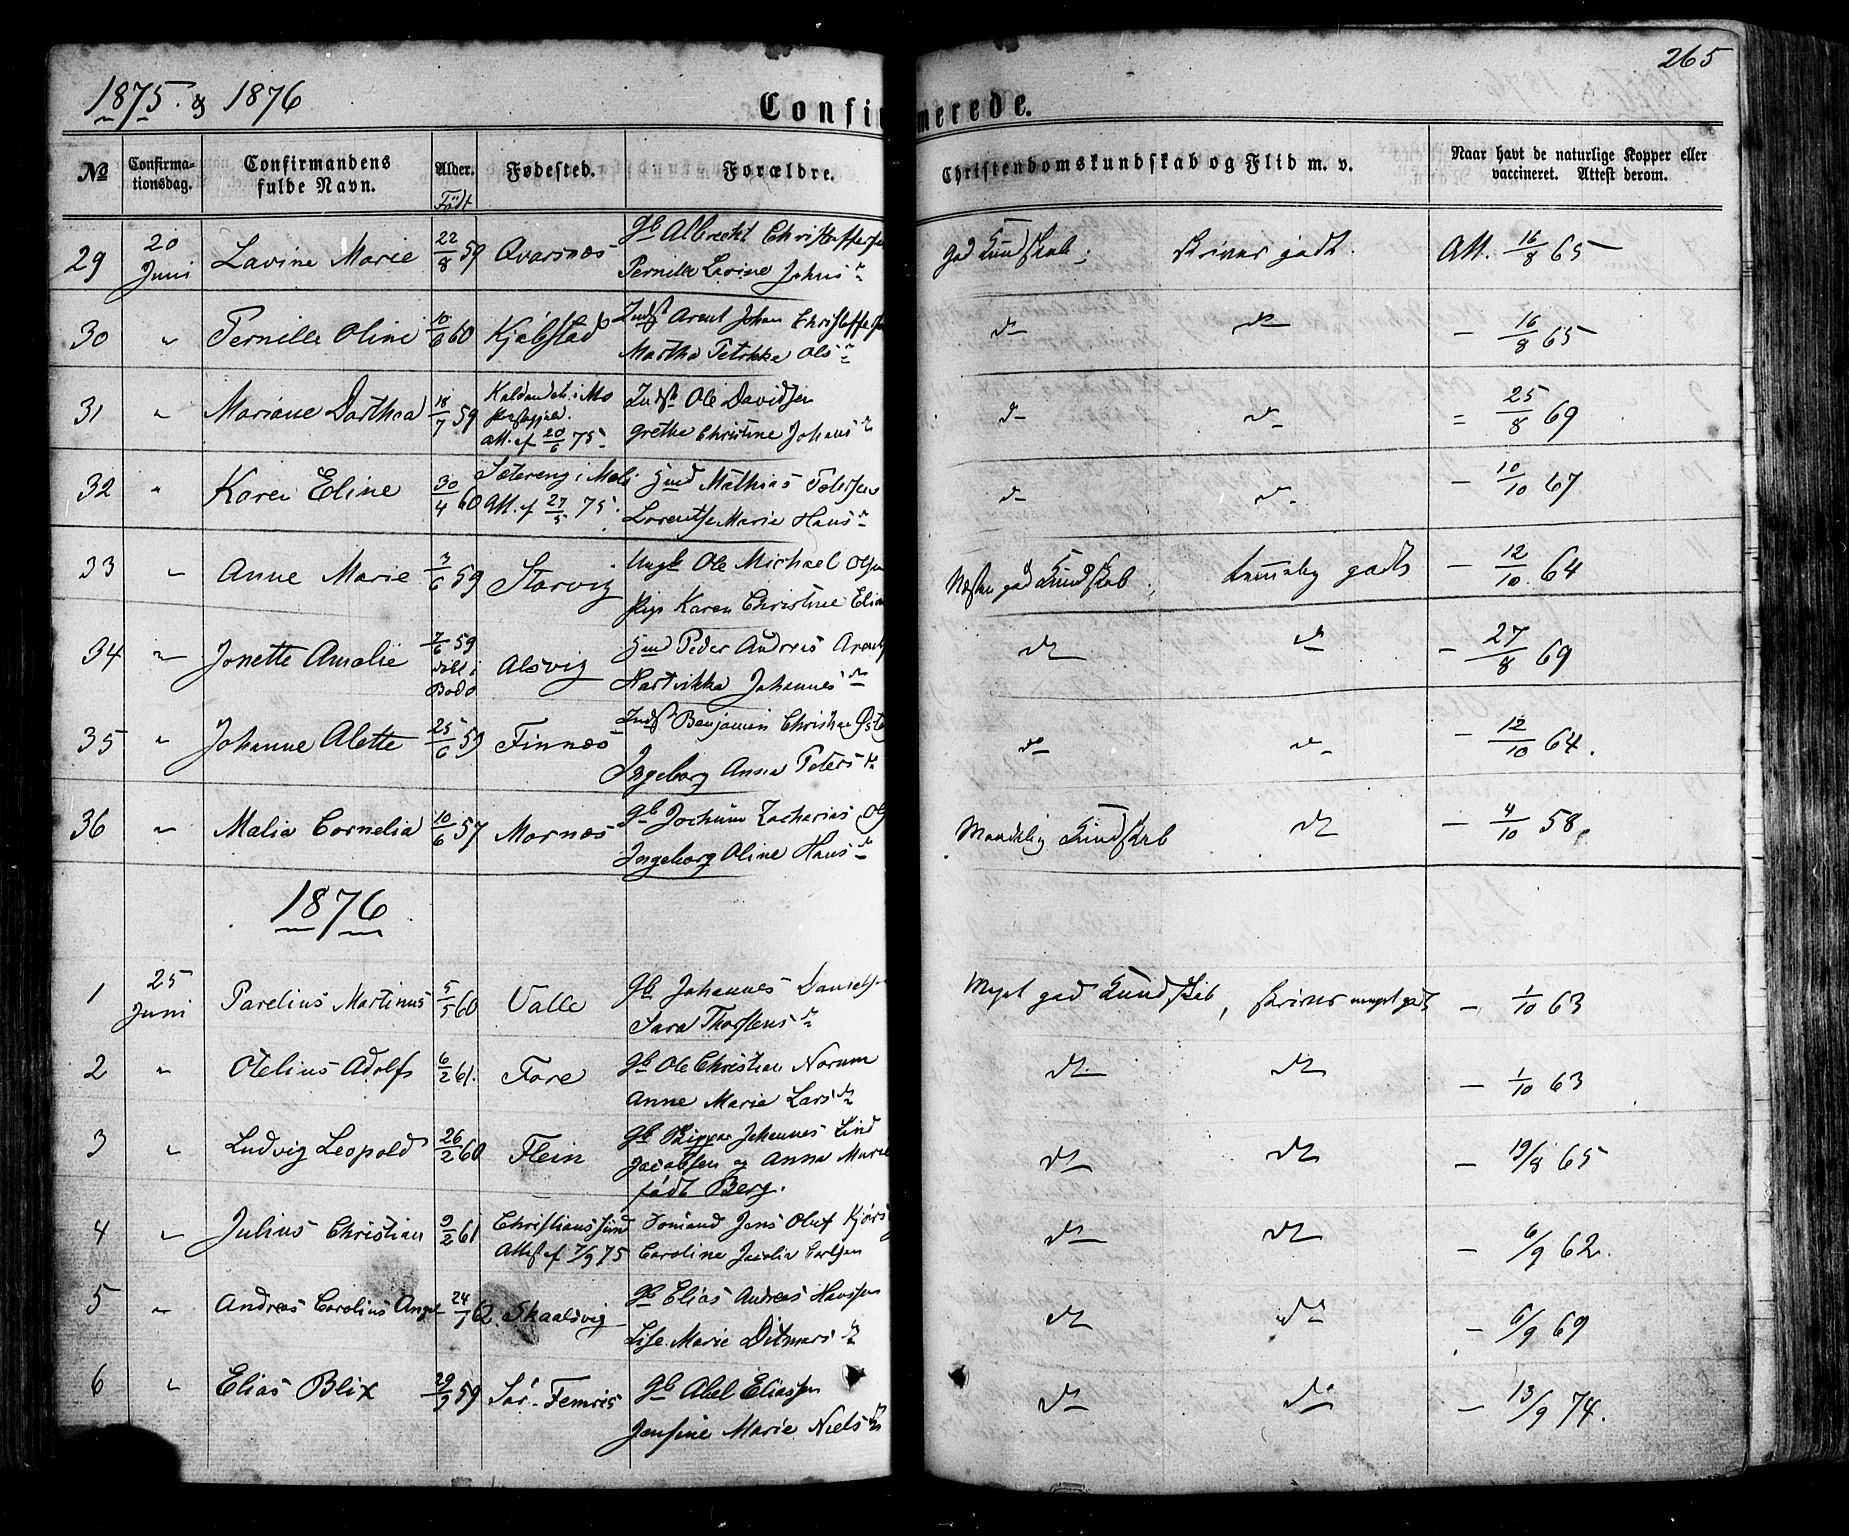 265
1875 & 1876
Confirmerede.
No
Confirmationsdag.
Confirmandens fulde Navn.
Alder.
Fødested.
Forældre.
Christendomskundskab og Flid m. v.
Naar havt de naturlige Kopper eller vaccineret. Attest derom.
Födt
29 20 Juni Lavine Marie 22/8 59 Qvarsnæs Gb Albrecht Christoffersen god Kundskab; skriver godt. Att. 16/8 65
Pernille Lavine Johns dr
30 " Pernille Oline 10/6 60 Kjelstad Indst Arent Johan Christoffersen do do - 16/8 65
Martha Petrikke Ols dr
31 " Mariane Dorthea 18/7 59 i Mo Indst Ole Davidsen do do = 25/8 69
Att. af 20/6 75 Grethe Christine Johans dr
32 " Karen Eline 30/4 60 Sætereng i Gmd Mathias Petersen do do - 10/10 67
Att. af 27/5 75. Lorentse Marie Hans dr
33 " Anne Marie 3/6 59 Storvig Ungk Ole Michael Olsen Næsten god Kundskab; temmelig godt - 12/10 64
Pige Karen Christine
34 " Jonette Amalie 7/6 59 i Bodø Alsvig Gmd Peder Andreis do do - 27/8 69
Hartvikka Johannes dr
35 " Johanne Alette 25/6 59 Finnæs Indst Benjamin Christian do do - 12/10 64.
Ingeborg Anna Peters dr
36 " Malia Cornelia 10/6 57 Mornæs Gb Jochum Zacharias Maadelig Kundskab do - 4/10 58.
Ingeborg Oline Hans dr
1876
1 25 Juni Parelius Martinus 5/5 60 Valle Gb Johannes Danielsen Meget god Kundskab, skriver meget godt - 1/10 63
Sara Thorstens dr
2 " Otelius Adolf 6/2 61. Fore Gb Ole Christian Norum do do - 1/10 63
Anne Marie Lars dr
3 " Ludvig Leopold 26/2 60 Flein Gb Skipper Johannes Lind do do - 19/8 65
Jacobsen og Anna Marie
født Berg.
4 " Julius Christian 9/2 61 Christianssund Jens Oluf do do - 6/9 62.
Attest af 7/9 75 Caroline Jacolia Carlsen
5 " Andreas Carolius Angel 24/1 62 Skaalsvig Gb Elias Andreas Hanssen do do - 6/9 69
Lise Marie Ditmars dr
6 " Elias Blix 29/9 59 Sør-Femris Gb Abel Eliassen do do - 13/9 74.
Jensine Marie Niels dr